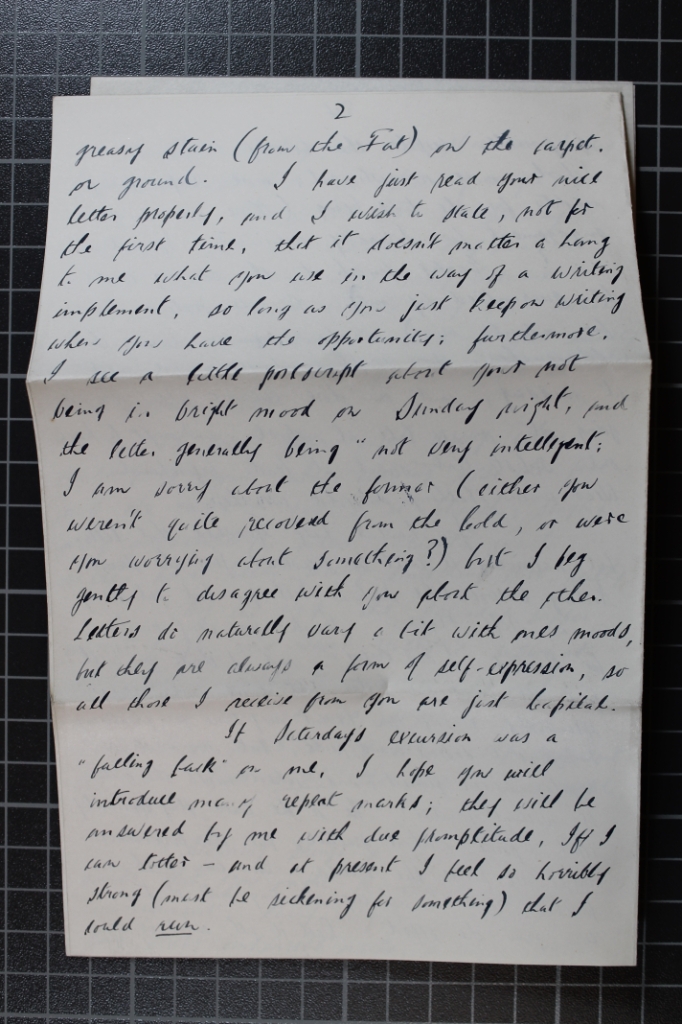 2
greasy stain (from the Fat) on the carpet.
or ground. I have just read your nice
letter properly, and I wish to state, not for
the first time, that it doesn't matter a hang
to me what you use in the way of a writing
implement, so long as you just keep on writing
when you have the opportunity; furthermore,
I see a little postscript about your not
being in bright mood on Sunday night, and
the letter generally being "not very intelligent;
I am sorry about the former (either you
weren't quite recovered from the cold, or were
you worrying about something?) but I beg
gently to disagree with you about the other.
Letters do naturally vary a bit with ones moods,
but they are always a form of self-expression, so
all those I receive from you are just capital.
If Saturdays excursion was a
"falling back" on me, I hope you will
introduce many repeat marks; they will be
answered by me with due promptitude, If I
can totter – and at present I feel so horribly
strong (must be sickening for something) that I
could run.